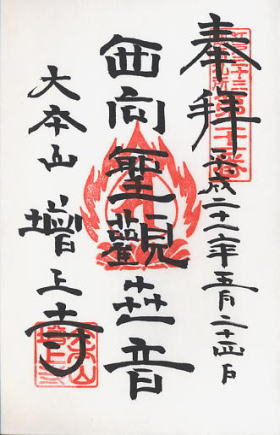 奉拝
平成二十八年五月二十四日
西向聖觀世音
大本山
增上寺